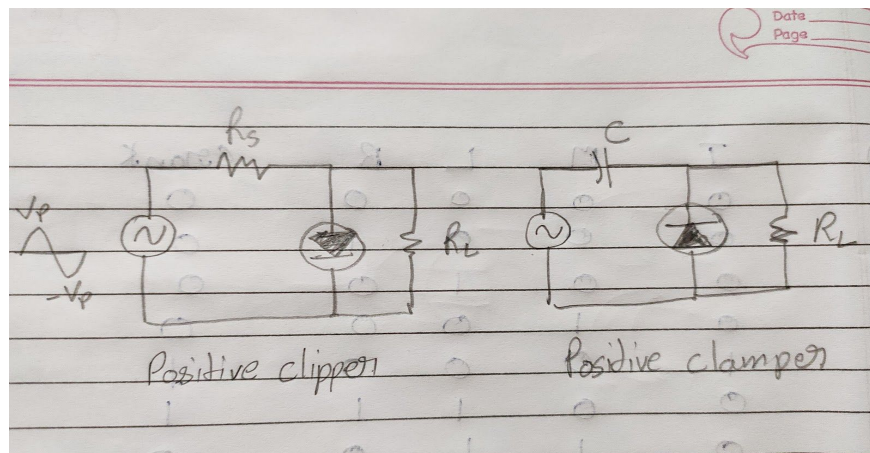 Date
Page
Rs
C
Vp
-Vp
RL
RL
Positive clipper
Positive clamper